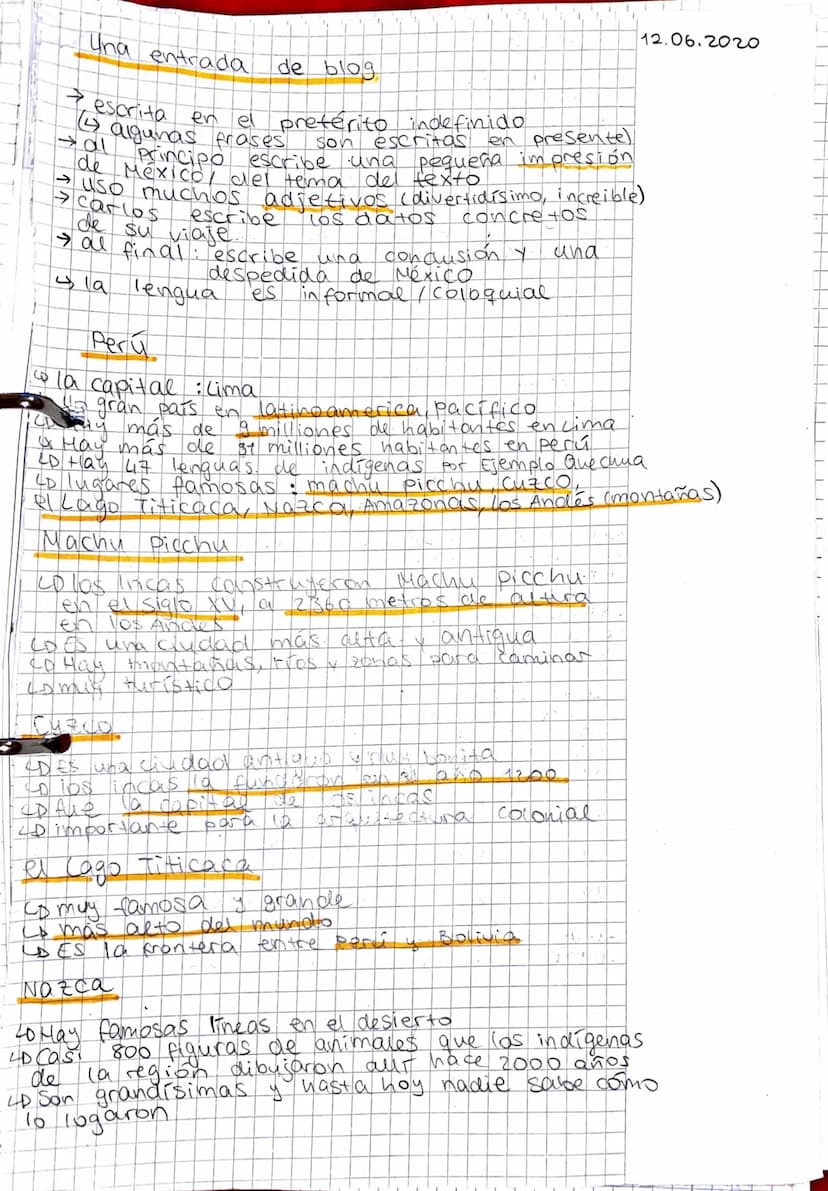 12.06.2020
Una entrada de blog
→ escrita en el pretérito indefinido
(↳ algunas frases son escritas en presente)
→ al principo escribe una pequeña impresión
de México/ del tema del texto
→ uso muchos adjetivos (divertidísimo, increible)
→ carlos escribe los datos concretos
de su viaje.
→ al final: escribe una conclusión y una
despedida de México
↳ la lengua es informal / coloquial
Perú
↳ la capital : Lima
gran país en latinoamerica, pacífico
más de 9 milliones de habitantes en Lima
↳ Hay más de 31 milliones habitantes en perú
↳ Hay 47 lenguas de indígenas por Ejemplo Quechua
↳ lugares famosas : machu picchu, cuzco,
el Lago Titicaca, Nazca, Amazonas, los Andés (montañas)
Machu picchu
↳ los Incas construyeron Machu picchu
en el siglo XV, a 2360 metros de altura
en los Andes
↳ Es una ciudad más alta y antigua
↳ Hay montañas, ríos y zonas para caminar
↳ muy turístico
Cuzco
↳ Es una ciudad antigua y muy bonita
↳ los incas la fundaron en el año 1200
↳ Fue la capital de los incas
↳ importante para la arquitectura colonial
el Lago Titicaca
↳ muy famosa y grande
↳ más alto del mundo
↳ Es la frontera entre Perú y Bolivia
Nazca
↳ Hay famosas líneas en el desierto
↳ Casi 800 figuras de animales que los indígenas
de la región dibujaron allí hace 2000 años
↳ Son grandísimas y hasta hoy nadie sabe cómo
lo logaron